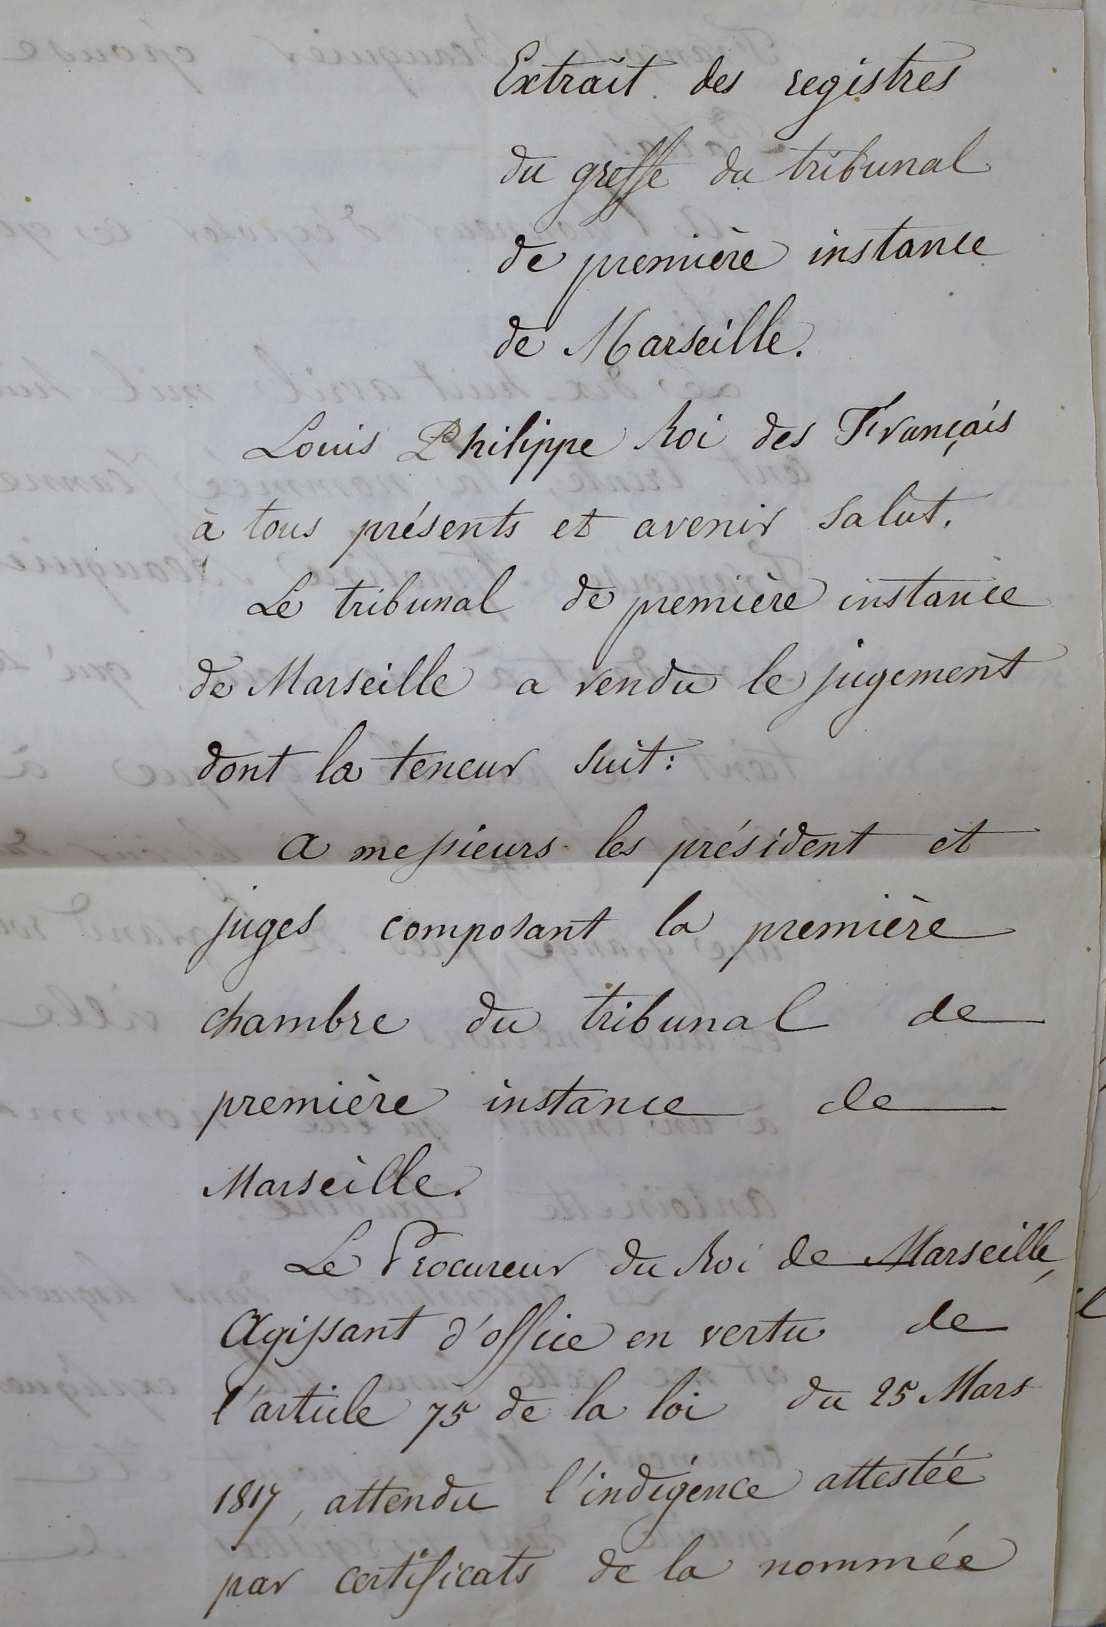 Extrait des registres
du greffe du tribunal
de première instance
de Marseille.
Louis Philippe Roi des Français
à tous présents et avenir salut.
Le tribunal de première instance
de Marseille a rendu le jugement
dont la teneur suit:
A messieurs les président et
juges composant la première
chambre du tribunal de
première instance de
Marseille.
Le Procureur du Roi de Marseille,
Agissant d'office en vertu de
l'article 75 de la loi du 25 Mars
1817, attendu l'indigence attestée
par certificats de la nommée